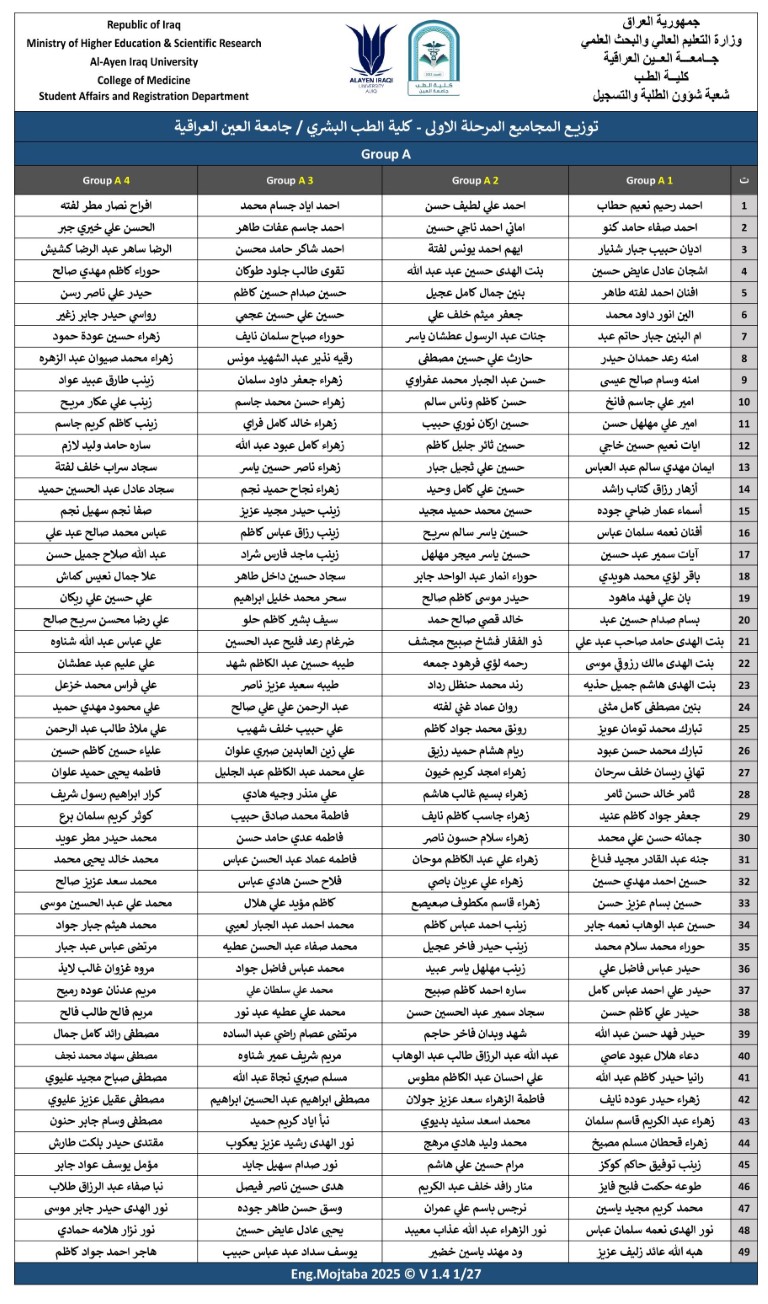 Republic of Iraq
Ministry of Higher Education & Scientific Research
Al-Ayen Iraq University
College of Medicine
Student Affairs and Registration Department
ALAYEN IRAQI
UNIVERSITY
AUIQ
كلية الطب
جامعة العين
جمهورية العراق
وزارة التعليم العالي والبحث العلمي
جـامعـــة العـين العراقية
كليـة الطب
شعبة شؤون الطلبة والتسجيل
توزيع المجاميع المرحلة الاولى - كلية الطب البشري / جامعة العين العراقية
Group A
ت Group A 1 Group A 2 Group A 3 Group A 4
1 احمد رحيم نعيم حطاب احمد علي لطيف حسن احمد اياد جسام محمد افراح نصار مطر لفته
2 احمد صفاء حامد كنو اماني احمد ناجي حسين احمد جاسم عفات طاهر الحسن علي خيري جبر
3 اديان حبيب جبار شنيار ايهم احمد يونس لفتة احمد شاكر حامد محسن الرضا ساهر عبد الرضا كشيش
4 اشجان عادل عايض حسين بنت الهدى حسين عبد عبد الله تقوى طالب جلود طوكان حوراء كاظم مهدي صالح
5 افنان احمد لفته طاهر بنين جمال كامل عجيل حسين صدام حسين كاظم حيدر علي ناصر رسن
6 الين انور داود محمد جعفر ميثم خلف علي حسين علي حسين عجمي رواسي حيدر جابر زغير
7 ام البنين جبار حاتم عبد جنات عبد الرسول عطشان ياسر حوراء صباح سلمان نايف زهراء حسين عودة حمود
8 امنه رعد حمدان حيدر حارث علي حسين مصطفى رقيه نذير عبد الشهيد مونس زهراء محمد صيوان عبد الزهره
9 امنه وسام صالح عيسى حسن عبد الجبار محمد عفراوي زهراء جعفر داود سلمان زينب طارق عبيد عواد
10 امير علي جاسم فانخ حسن كاظم وناس سالم زهراء حسن محمد جاسم زينب علي عكار مريح
11 امير علي مهلهل حسن حسين اركان نوري حبيب زهراء خالد كامل فراي زينب كاظم كريم جاسم
12 ايات نعيم حسين خاجي حسين ثائر جليل كاظم زهراء كامل عبود عبد الله ساره حامد وليد لازم
13 ايمان مهدي سالم عبد العباس حسين علي ثجيل جبار زهراء ناصر حسين ياسر سجاد سراب خلف لفتة
14 أزهار رزاق كتاب راشد حسين علي كامل وحيد زهراء نجاح حميد نجم سجاد عادل عبد الحسين حميد
15 أسماء عمار ضاحي جوده حسين محمد حميد مجيد زينب حيدر مجيد عزيز صفا نجم سهيل نجم
16 أفنان نعمه سلمان عباس حسين ياسر سالم سريح زينب رزاق عباس كاظم عباس محمد صالح عبد علي
17 آيات سمير عبد حسين حسين ياسر ميجر مهلهل زينب ماجد فارس شراد عبد الله صلاح جميل حسن
18 باقر لؤي محمد هويدي حوراء انمار عبد الواحد جابر سجاد حسين داخل طاهر علا جمال نعيس كماش
19 بان علي فهد ماهود حيدر موسى كاظم صالح سحر محمد خليل ابراهيم علي حسين علي ريكان
20 بسام صدام حسين عبد خالد قصي صالح حمد سيف بشير كاظم حلو علي رضا محسن سريح صالح
21 بنت الهدى حامد صاحب عبد علي ذو الفقار فشاخ صبيح مجشف ضرغام رعد فليح عبد الحسين علي عباس عبد الله شناوه
22 بنت الهدى مالك رزوقي موسى رحمه لؤي فرهود جمعه طيبه حسين عبد الكاظم شهد علي عليم عبد عطشان
23 بنت الهدى هاشم جميل حذيه رند محمد حنظل رداد طيبه سعيد عزيز ناصر علي فراس محمد خزعل
24 بنين مصطفى كامل مثنى روان عماد غني لفته عبد الرحمن علي علي صالح علي محمود مهدي حميد
25 تبارك محمد تومان عويز رونق محمد جواد كاظم علي حبيب خلف شهيب علي ملاذ طالب عبد الرحمن
26 تبارك محمد حسن عبود ريام هشام حميد رزيق علي زين العابدين صبري علوان علياء حسين كاظم حسين
27 تهاني ريسان خلف سرحان زهراء امجد كريم خيون علي محمد عبد الكاظم عبد الجليل فاطمه يحيى حميد علوان
28 ثامر خالد حسن ثامر زهراء بسيم غالب هاشم علي منذر وجيه هادي كرار ابراهيم رسول شريف
29 جعفر جواد كاظم عنيد زهراء جاسب كاظم نايف فاطمة محمد صادق حبيب كوثر كريم سلمان برع
30 جمانه حسن علي محمد زهراء سلام حسون ناصر فاطمه عدي حامد حسن محمد حيدر مطر عويد
31 جنه عبد القادر مجيد فداغ زهراء علي عبد الكاظم موحان فاطمه عماد عبد الحسن عباس محمد خالد يحيى محمد
32 حسين احمد مهدي حسين زهراء علي عريان باصي فلاح حسن هادي عباس محمد سعد عزيز صالح
33 حسين بسام عزيز حسن زهراء قاسم مكطوف صعيصع كاظم مؤيد علي هلال محمد علي عبد الحسين موسى
34 حسين عبد الوهاب نعمه جابر زينب احمد عباس كاظم محمد احمد عبد الجبار لعيبي محمد هيثم جبار جواد
35 حوراء محمد سلام محمد زينب حيدر فاخر عجيل محمد صفاء عبد الحسن عطيه مرتضى عباس عبد جبار
36 حيدر عباس فاضل علي زينب مهلهل ياسر عبيد محمد عباس فاضل جواد مروه غزوان غالب لابذ
37 حيدر علي احمد عباس كامل ساره احمد كاظم صبيح محمد علي سلطان علي مريم عدنان عوده رميح
38 حيدر علي كاظم حسن سجاد سمير عبد الحسين حسن محمد علي عطيه عبد نور مريم فالح طالب فالح
39 حيدر فهد حسن عبد الله شهد وبدان فاخر حاجم مرتضى عصام راضي عبد الساده مصطفى رائد كامل جمال
40 دعاء هلال عبود عاصي عبد الله عبد الرزاق طالب عبد الوهاب مريم شريف عمير شناوه مصطفى سهاد محمد نجف
41 رانيا حيدر كاظم عبد الله علي احسان عبد الكاظم مطوس مسلم صبري نجاة عبد الله مصطفى صباح مجيد عليوي
42 زهراء حيدر عوده نايف فاطمة الزهراء سعد عزيز جولان مصطفى ابراهيم عبد الحسين ابراهيم مصطفى عقيل عزيز عليوي
43 زهراء عبد الكريم قاسم سلمان محمد اسعد سنيد بديوي نبأ اياد كريم حميد مصطفى وسام جابر حنون
44 زهراء قحطان مسلم مصيخ محمد وليد هادي مرهج نور الهدى رشيد عزيز يعكوب مقتدى حيدر بلكت طارش
45 زينب توفيق حاكم كوكز مرام حسين علي هاشم نور صدام سهيل جايد مؤمل يوسف عواد جابر
46 طوعه حكمت فليح فايز منار رافد خلف عبد الكريم هدى حسين ناصر فيصل نبا صفاء عبد الرزاق طلاب
47 محمد كريم مجيد ياسين نرجس باسم علي عمران وسق حسن طاهر جوده نور الهدى حيدر جابر موسى
48 نور الهدى نعمه سلمان عباس نور الزهراء عبد الله عذاب معيبد يحيى عادل عايض حسين نور نزار هلامه حمادي
49 هبه الله عائد زليف عزيز ود مهند ياسين خضير يوسف سداد عبد عباس حبيب هاجر احمد جواد كاظم
Eng.Mojtaba 2025 © V 1.4 1/27